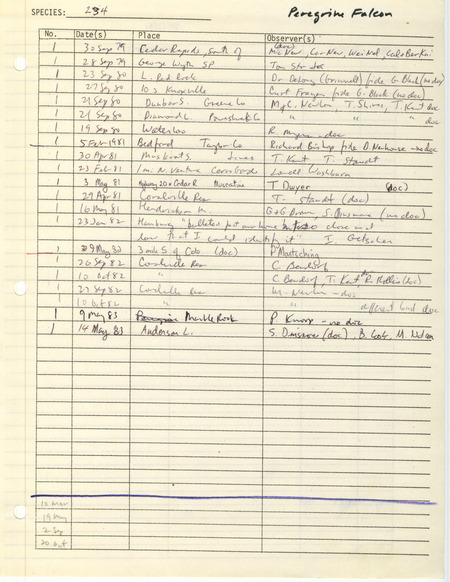 SPECIES: 234 Peregrine Falcon
No. Date(s) Place Observer(s)
(doc)
1 30 Sep 79 Cedar Rapids, South of
1 28 Sep 79 George Wyth SP Tom
1 23 Sep 80 L. Red Rock Dr DeLong (Grinnell) fide G. Black (no doc)
1 27 Sep 80 10 S Knoxville Curt fide G. Black (no doc)
1 21 Sep 80 Dunbar S. Greene Co T. Shires, T. Kent doc
1 21 Sep 80 Diamond L. Poweshiek Co " " " doc
1 19 Sep 80 Waterloo R. - doc
1 5 Feb 1981 Bedford Taylor Co Richard Bishop fide D. Newhouse - no doc
1 30 Apr 81 Jones T. Kent T. Staudt
1 23 Feb 81 1 m. N Ventura Cerro Gordo Lowell Washburn
1 3 May 81 Highway 20 x Cedar R Muscatine T Dwyer (doc)
1 29 Apr 81 Coralville Res T. Staudt (doc)
1 16 May 81 G & G Brown, S. Dinsmore (no doc)
1 23 Jan 82 Hamburg "bulleted past our home so close and
low that I could identify it" I. Getscher
1 29 May 82 3 miles S. of (doc) P Moetsching
1 26 Sep 82 Coralville Res C. Bendorf
1 10 Oct 82 " C. Bendorf, T. Kent, R. Hollis (doc)
1 27 Sep 82 Coralville Res M. Newlon - doc
1 10 Oct 82 " " different bird doc
1 9 May 83 Marble Rock P Knoop - no doc
1 14 May 83 Anderson L. S. Dinsmore (doc), B. M. Nelson
12 Mar
19 May
2 Sep
20 Oct